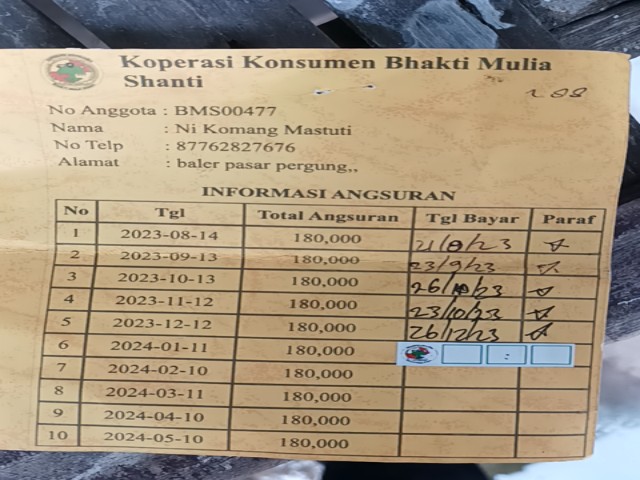 Koperasi Konsumen Bhakti Mulia
Shanti
No Anggota : BMS00477
Nama : Ni Komang Mastuti
No Telp : 87762827676
Alamat : baler pasar pergung,,
INFORMASI ANGSURAN
No Tgl Total Angsuran Tgl Bayar Paraf
1 2023-08-14 180,000 21/8/23
2 2023-09-13 180,000 23/9/23
3 2023-10-13 180,000 26/10/23
4 2023-11-12 180,000 23/10/23
5 2023-12-12 180,000 26/12/23
6 2024-01-11 180,000 :
7 2024-02-10 180,000
8 2024-03-11 180,000
9 2024-04-10 180,000
10 2024-05-10 180,000